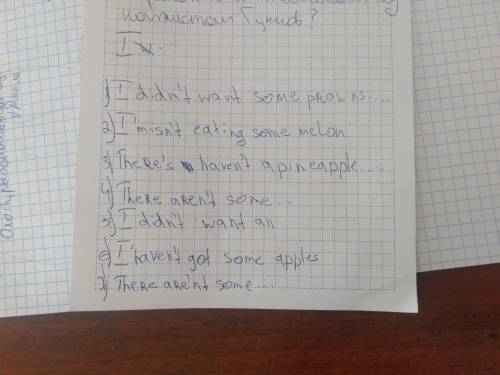 I
1) I didn't want some prowns....
2) I'misn't eating some melon
3) There's haven't a pineapple....
4) There aren't some...
5) I didn't want an
6) I haven't got some apples
7) There are'nt some.....